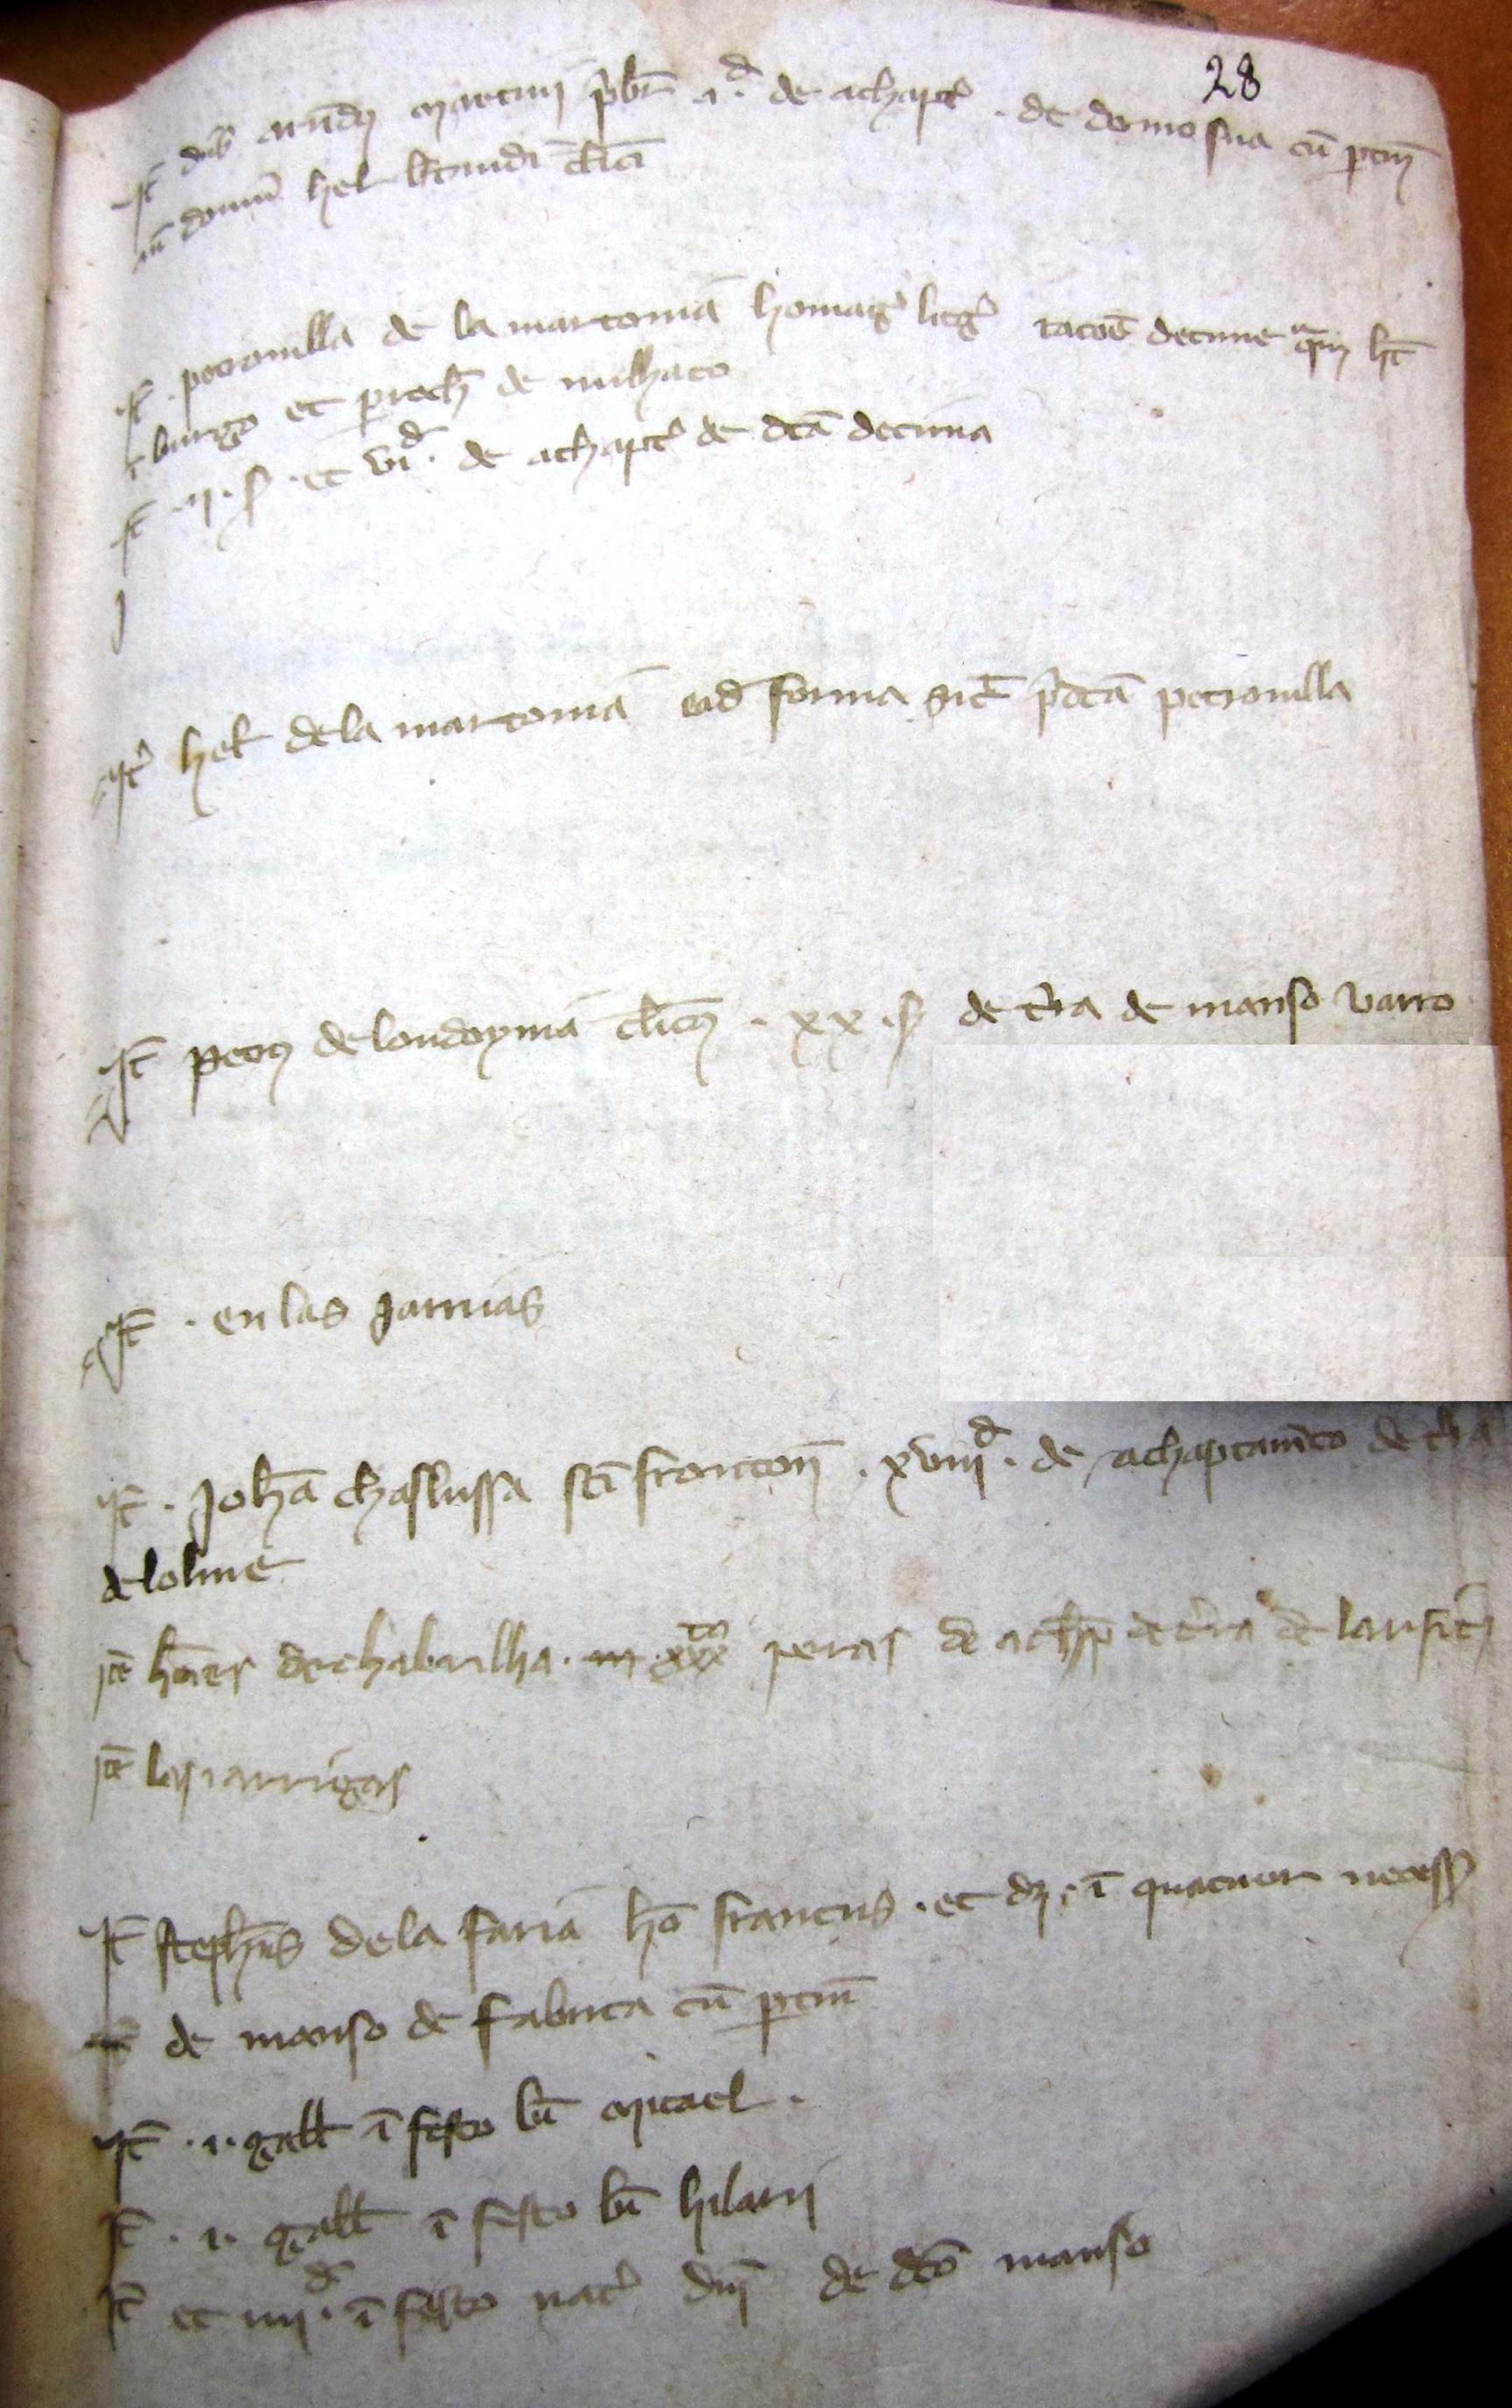 28
It dns arnds martini pbr .i.d de achapt . de domo sua cu ptin
domu hel btrandi clici
It . petronilla de la martonia homag litg racoe decime qm ht
burgo et proch de milhaco
It .ii.s. et vi d. de achapt de dca decima
It hel de la martonia ead forma sic pdca petronilla
It petrs de londoyma clics . xx . s de tra de manso varro
It . en las jarrias
It . Joha chaslussa sci frontonis . xviii d . de achaptameto de tra
de lolme
Ite hedes de chabrilha . xxx peras de achap de tra de
Ite las iarrigas
It stephs de la faria ho francus . et dz . i quatuor necess
de manso de fabrica cu ptin
It . i . gall i festo bi micael .
It . i . gall i festo bi hilarii
It et iiii d . i festo nat dni de dco manso